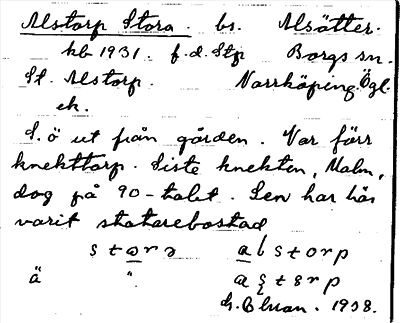 Alstorp Stora. bs. Alsätter.
kb 1931. f.d. Stp Borgs sn.
St. Alstorp. Norrköping. Ögl.
ek.
S.ö ut från gården. Var förr
knekttorp. Siste knekten, Malm,
dog på 90-talet. Sen har här
varit statarebostad
stora alstorp
ä "
1938.